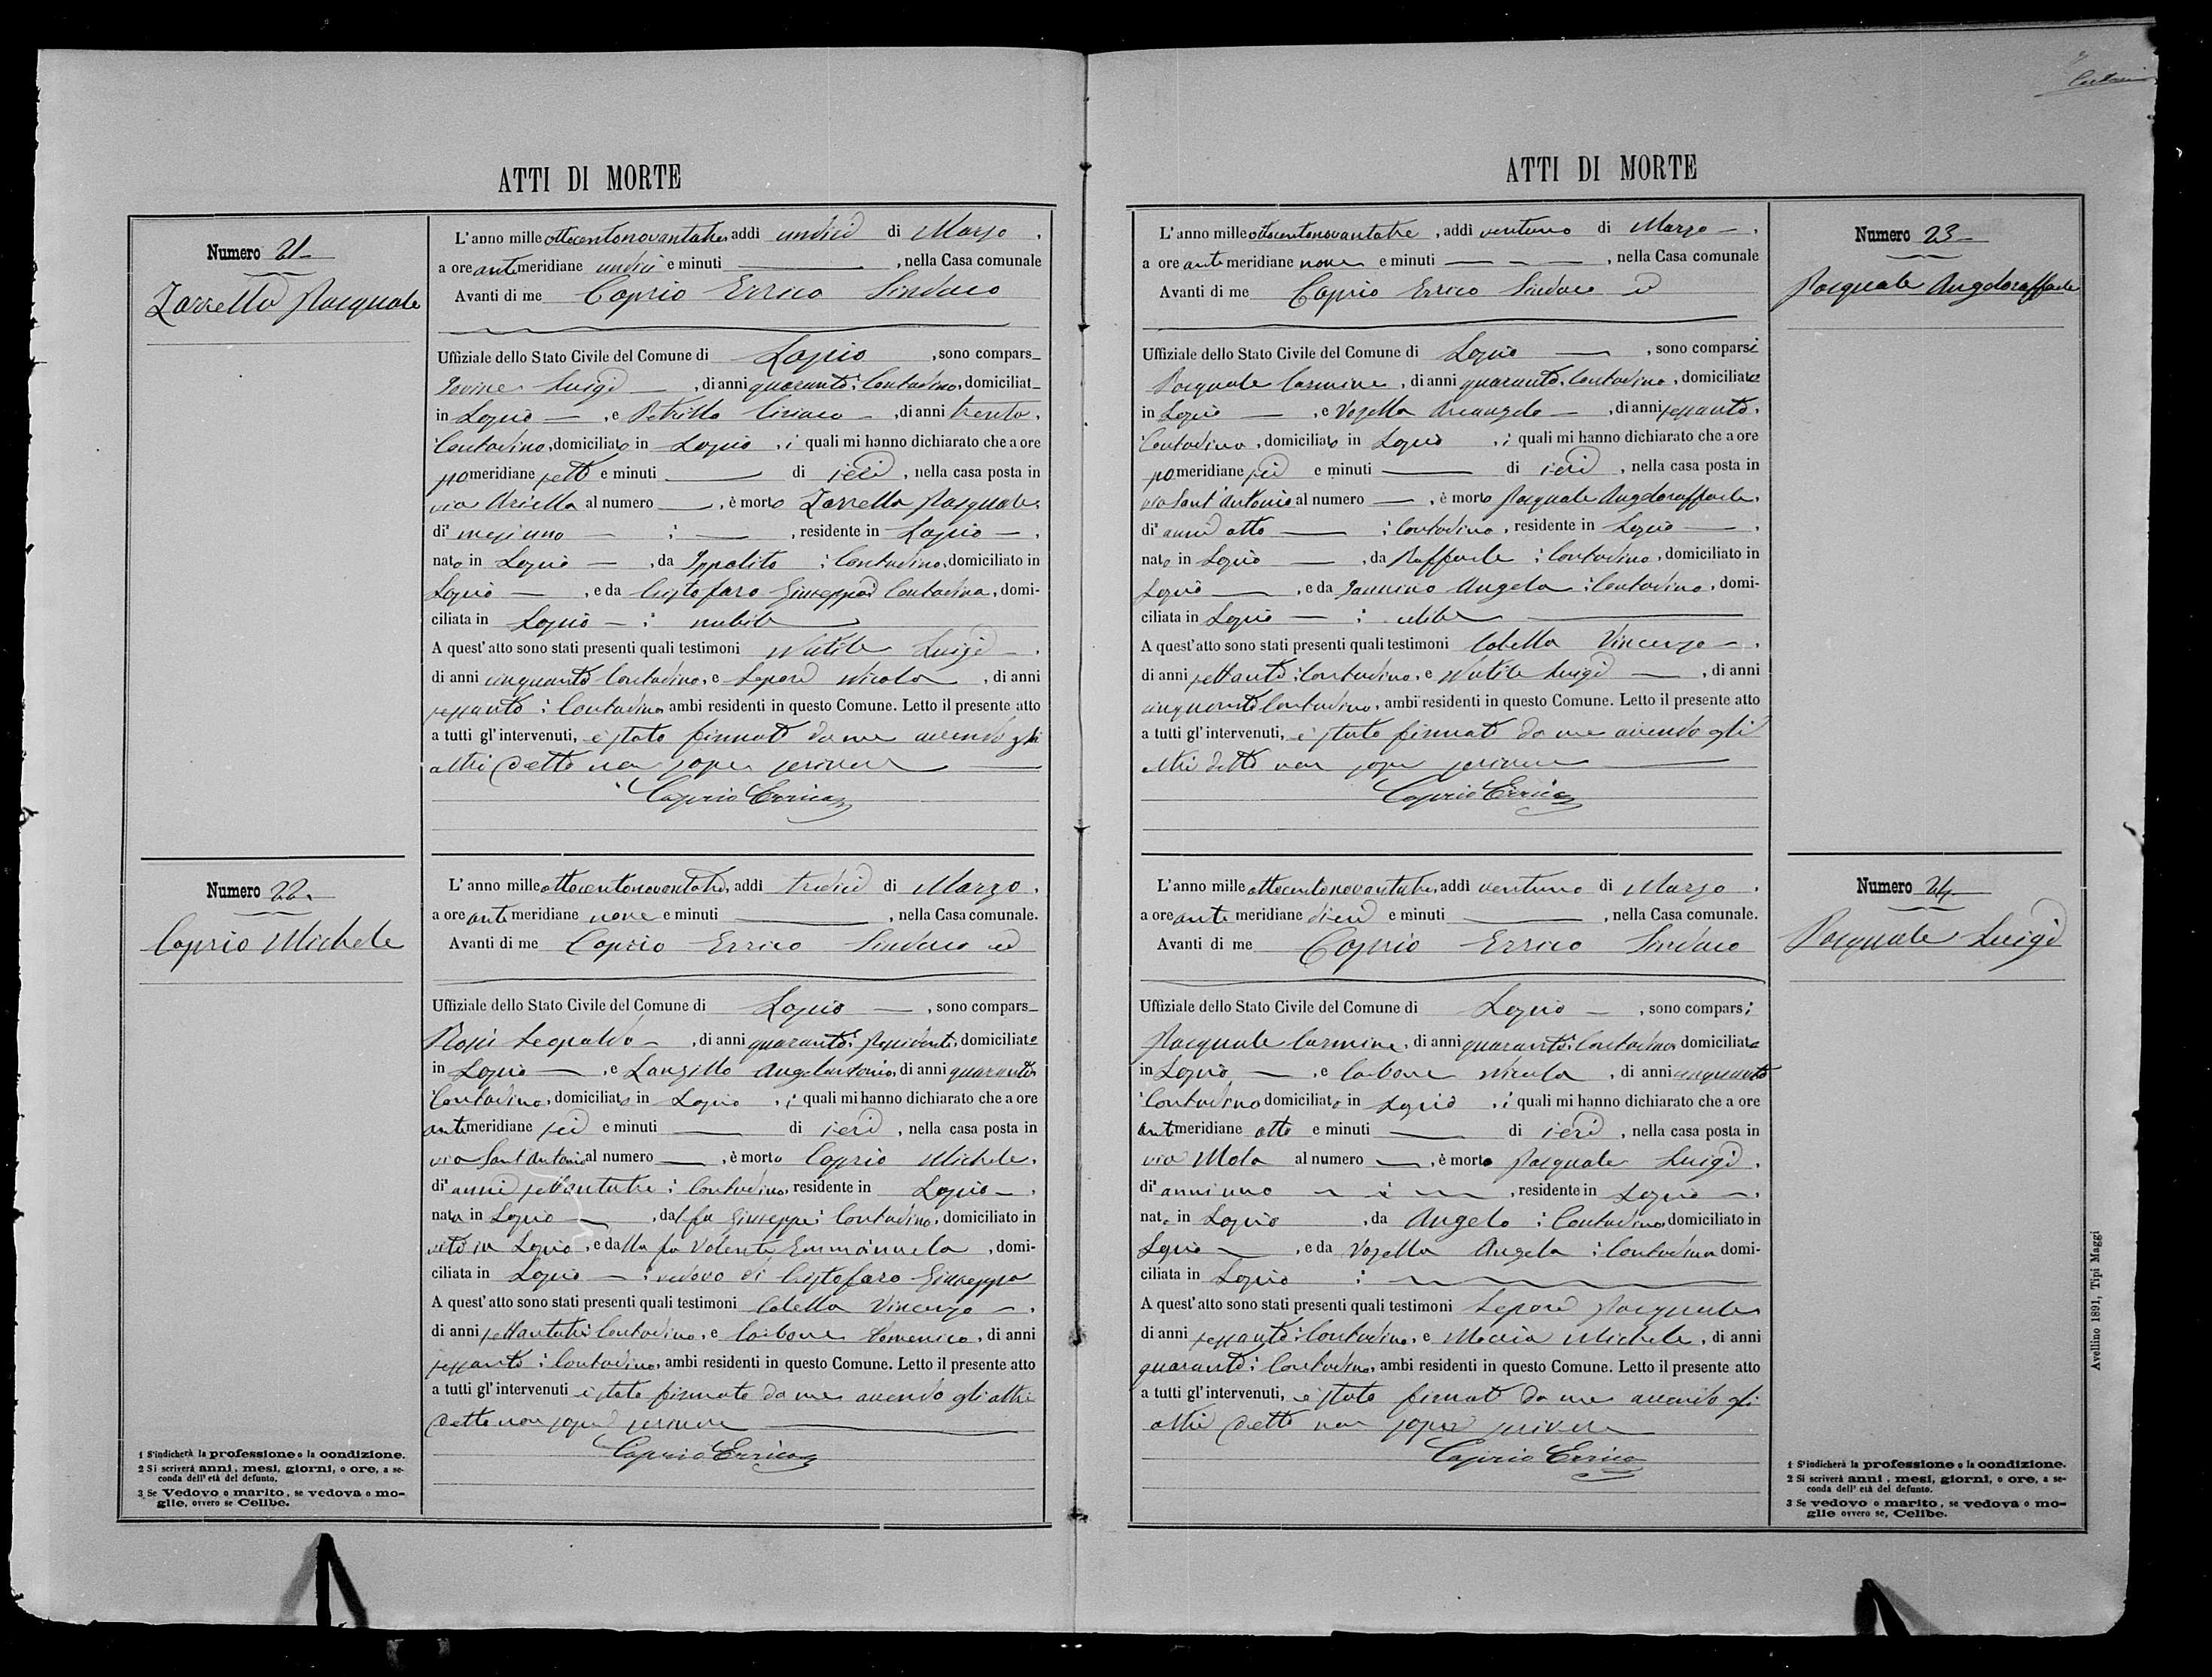 ATTI DI MORTE
Numero 21
Zarrella Pasquale
L'anno mille ottocentonovantatre, addì undici di Marzo,
a ore antimeridiane undici e minuti — , nella Casa comunale
Avanti di me Caprio Errico Sindaco
Uffiziale dello Stato Civile del Comune di Lapio , sono compars_
Iovine Luigi — , di anni quaranta, Contadino, domiciliat_
in Lapio — , e Petrillo Ciriaco — , di anni trenta,
Contadino, domiciliato in Lapio , i quali mi hanno dichiarato che a ore
pomeridiane sette e minuti — di ieri , nella casa posta in
via Ariella al numero — , è morto Zarrella Pasquale,
di mesi uno — ; — , residente in Lapio — ,
nato in Lapio — , da Ippolito ; Contadino, domiciliato in
Lapio — , e da Cristofaro Giuseppa Contadina, domi-
ciliata in Lapio — ; nubile
A quest'atto sono stati presenti quali testimoni Nutile Luigi — ,
di anni cinquanta Contadino, e Lepore Nicola , di anni
sessanta ; Contadino, ambi residenti in questo Comune. Letto il presente atto
a tutti gl'intervenuti, è stato firmato da me avendo gli
altri detto non saper scrivere
Caprio Errico
Numero 22
Caprio Michele
L'anno mille ottocentonovantatre, addì tredici di Marzo,
a ore antimeridiane nove e minuti — , nella Casa comunale.
Avanti di me Caprio Errico Sindaco ed
Uffiziale dello Stato Civile del Comune di Lapio — , sono compars_
Rossi Leopoldo — , di anni quaranta, Possidente, domiciliato
in Lapio — , e Lanzillo Angelantonio, di anni quaranta
Contadino, domiciliato in Lapio , i quali mi hanno dichiarato che a ore
antimeridiane sei e minuti — di ieri , nella casa posta in
via Sant'Antonio al numero — , è morto Caprio Michele,
di anni settantatre ; Contadino, residente in Lapio — ,
nato in Lapio — , dal fu Giuseppe ; Contadino, domiciliato in
vita in Lapio , e dalla fu Valente Emmanuela , domi-
ciliata in Lapio — ; vedovo di Cristofaro Giuseppa
A quest'atto sono stati presenti quali testimoni Colella Vincenzo — ,
di anni settantatre Contadino, e Carbone Domenico, di anni
sessanta ; Contadino, ambi residenti in questo Comune. Letto il presente atto
a tutti gl'intervenuti è stato firmato da me avendo gli altri
detto non saper scrivere
Caprio Errico
1 S'indicherà la professione o la condizione.
2 Si scriverà anni, mesi, giorni, o ore, a se-
conda dell'età del defunto.
3 Se Vedovo o marito, se vedova o mo-
glie, ovvero se Celibe.
ATTI DI MORTE
Numero 23
Pasquale Angeloraffaele
L'anno mille ottocentonovantatre , addì ventuno di Marzo — ,
a ore antimeridiane nove e minuti — — — , nella Casa comunale
Avanti di me Caprio Errico Sindaco ed
Uffiziale dello Stato Civile del Comune di Lapio — , sono comparsi
Pasquale Carmine , di anni quaranta, Contadino , domiciliato
in Lapio — , e Vozella Arcangelo — , di anni sessanta,
Contadino , domiciliato in Lapio , i quali mi hanno dichiarato che a ore
pomeridiane sei e minuti — di ieri , nella casa posta in
via Sant'Antonio al numero — , è morto Pasquale Angeloraffaele,
di anni otto — ; Contadino , residente in Lapio — ,
nato in Lapio — , da Raffaele ; Contadino , domiciliato in
Lapio — , e da Iannino Angela ; Contadina , domi-
ciliata in Lapio — ; celibe
A quest'atto sono stati presenti quali testimoni Colella Vincenzo — ,
di anni settanta ; Contadino, e Nutile Luigi — , di anni
cinquanta Contadino , ambi residenti in questo Comune. Letto il presente atto
a tutti gl'intervenuti, è stato firmato da me avendo gli
altri detto non saper scrivere
Caprio Errico
Numero 24
Pasquale Luigi
L'anno mille ottocentonovantatre, addì ventuno di Marzo ,
a ore antimeridiane dieci e minuti — , nella Casa comunale.
Avanti di me Caprio Errico Sindaco
Uffiziale dello Stato Civile del Comune di Lapio — , sono comparsi
Pasquale Carmine, di anni quaranta ; Contadino, domiciliato
in Lapio — , e Carbone Nicola , di anni cinquanta
Contadino domiciliato in Lapio , i quali mi hanno dichiarato che a ore
antimeridiane otto e minuti — di ieri , nella casa posta in
via Mola al numero — , è morto Pasquale Luigi ,
di anni uno — ; — , residente in Lapio — ,
nato in Lapio , da Angelo ; Contadino, domiciliato in
Lapio — , e da Vozella Angela ; Contadina domi-
ciliata in Lapio ;
A quest'atto sono stati presenti quali testimoni Lepore Pasquale
di anni sessanta ; Contadino, e Moccia Michele, di anni
quaranta ; Contadino, ambi residenti in questo Comune. Letto il presente atto
a tutti gl'intervenuti, è stato firmato da me avendo gli
altri detto non saper scrivere
Caprio Errico
1 S'indicherà la professione o la condizione.
2 Si scriverà anni, mesi, giorni, o ore, a se-
conda dell'età del defunto.
3 Se vedovo o marito, se vedova o mo-
glie ovvero se, Celibe.
Avellino 1891, Tipi Maggi